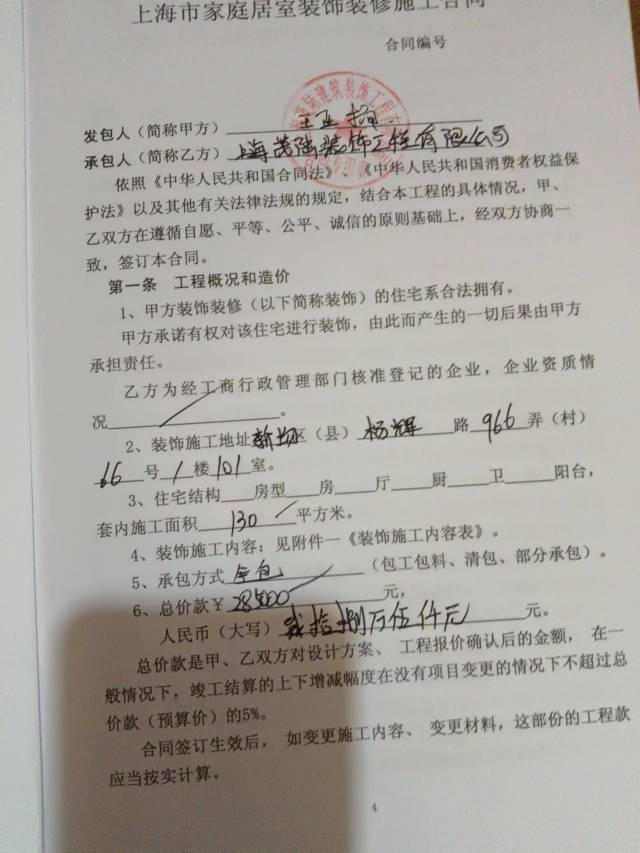 上海市家庭居室装饰装修施工合同
合同编号
发包人（简称甲方）王亚
承包人（简称乙方）上海茂陆装饰工程有限公司
依照《中华人民共和国合同法》、《中华人民共和国消费者权益保
护法》以及其他有关法律法规的规定，结合本工程的具体情况，甲、
乙双方在遵循自愿、平等、公平、诚信的原则基础上，经双方协商一
致，签订本合同。
第一条 工程概况和造价
1、甲方装饰装修（以下简称装饰）的住宅系合法拥有。
甲方承诺有权对该住宅进行装饰，由此而产生的一切后果由甲方
承担责任。
乙方为经工商行政管理部门核准登记的企业，企业资质情
况 。
2、装饰施工地址 区（县）杨辉 路 966 弄（村）
66 号 1 楼 101 室。
3、住宅结构 房型 房 厅 厨 卫 阳台，
套内施工面积 130 平方米。
4、装饰施工内容：见附件一《装饰施工内容表》。
5、承包方式 全包 （包工包料、清包、部分承包）。
6、总价款￥285000 元，
人民币（大写）贰拾捌万伍仟元 元。
总价款是甲、乙双方对设计方案、 工程报价确认后的金额， 在一
般情况下，竣工结算的上下增减幅度在没有项目变更的情况下不超过总
价款（预算价）的5%。
合同签订生效后， 如变更施工内容、 变更材料，这部份的工程款
应当按实计算。
4